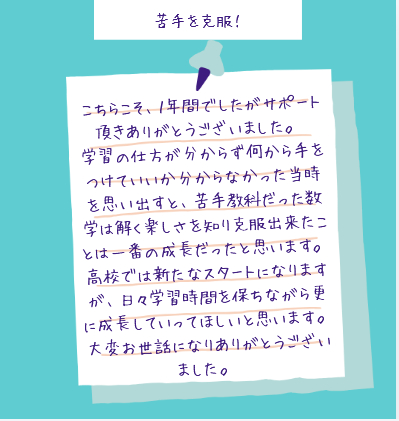 苦手を克服!
こちらこそ、1年間でしたがサポート
頂きありがとうございました。
学習の仕方が分からず何から手を
つけていいか分からなかった当時
を思い出すと、苦手教科だった数
学は解く楽しさを知り克服出来たこ
とは一番の成長だったと思います。
高校では新たなスタートになります
が、日々学習時間を保ちながら更
に成長していってほしいと思います。
大変お世話になりありがとうござい
ました。